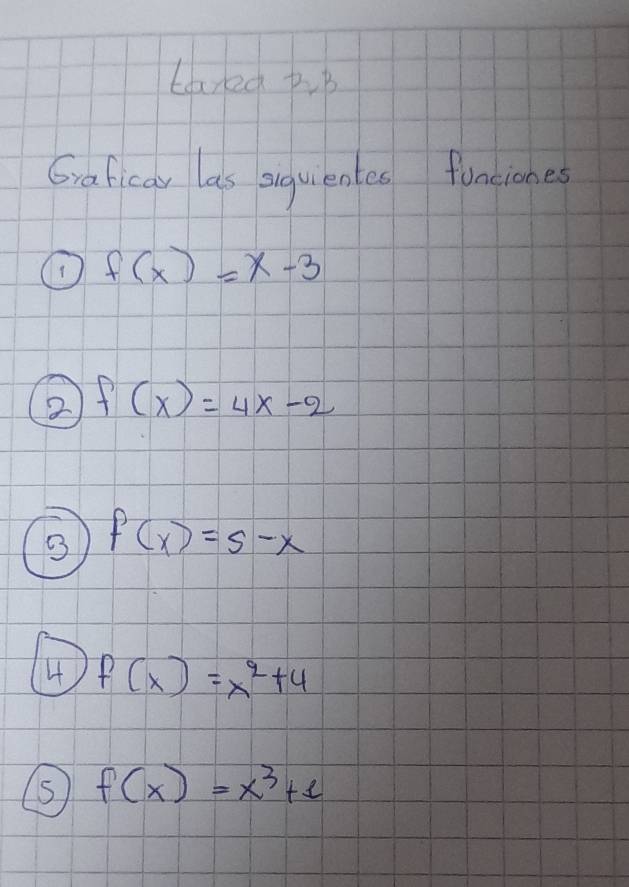 tarea
Graficar las siguientes funciones
① f(x) = x - 3
② f(x) = 4x - 2
③ f(x) = 5 - x
④ f(x) = x² + 4
⑤ f(x) = x³ + 1